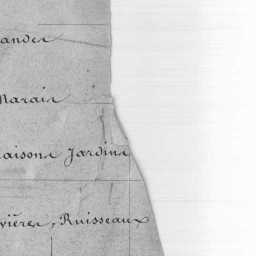 andes
Marais
aisons Jardins
vières, Ruisseaux